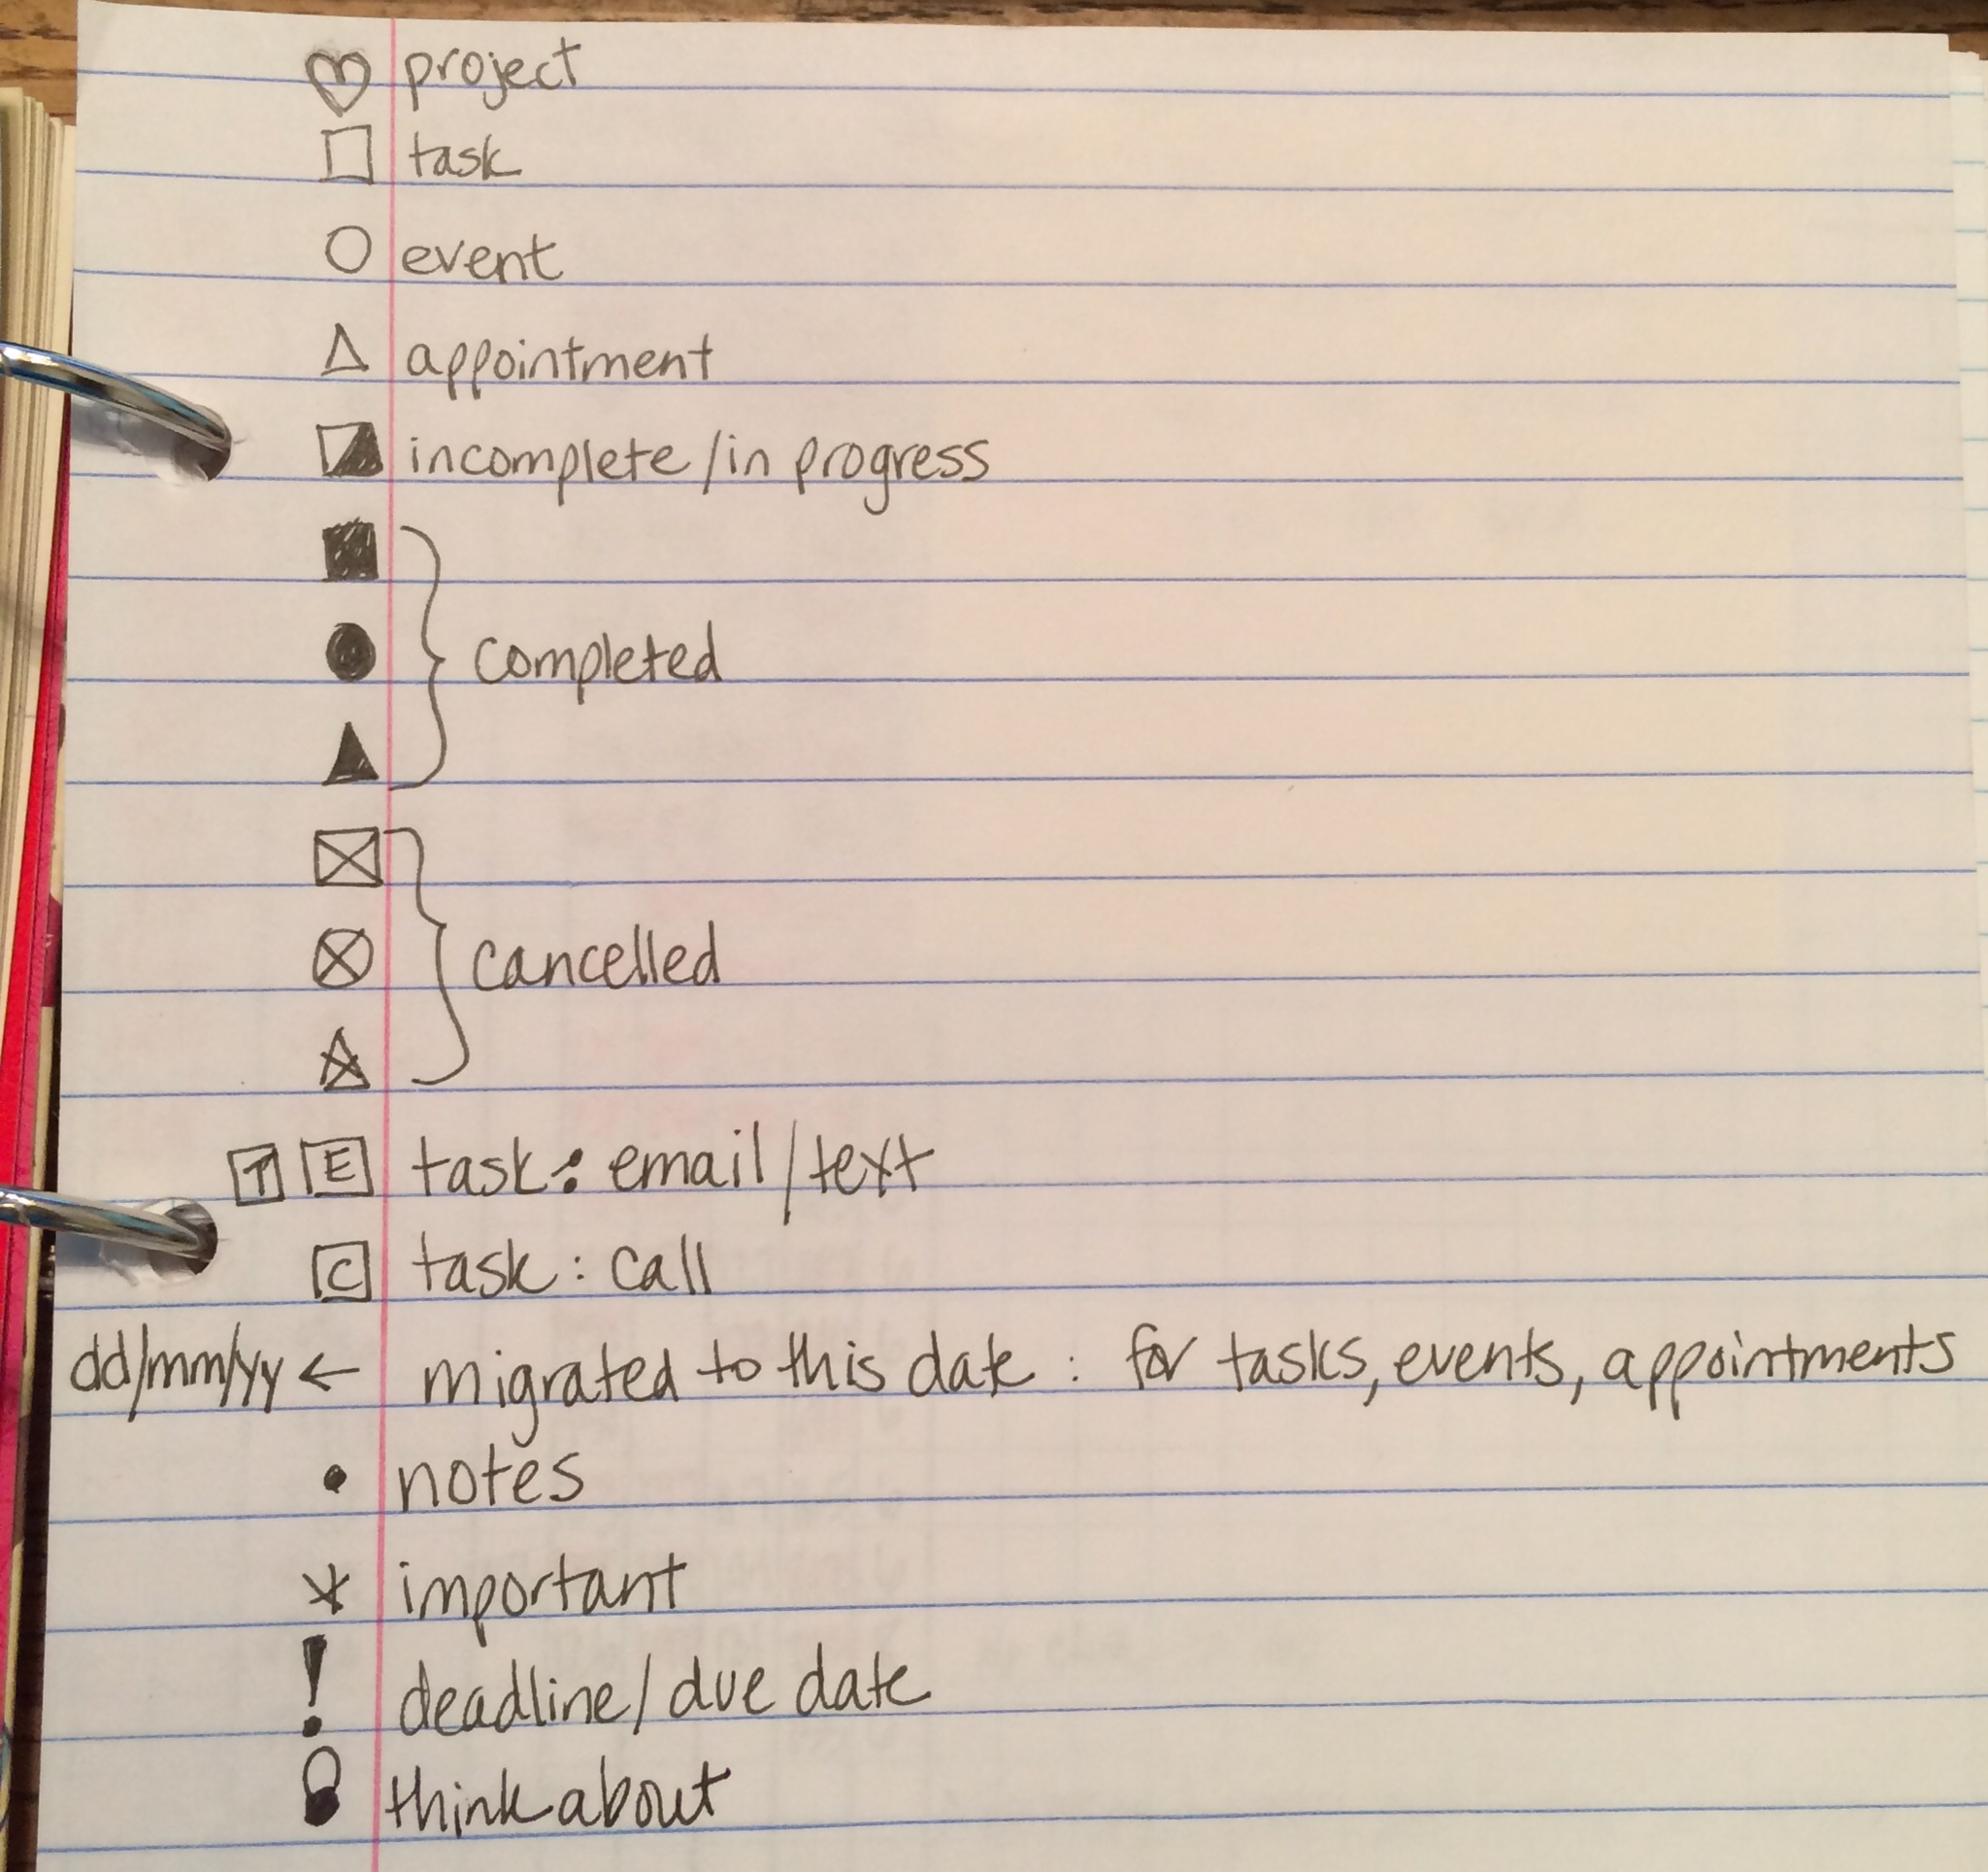 project
task
event
appointment
incomplete/in progress
completed
cancelled
T E task: email/text
C task: call
dd/mm/yy ← migrated to this date : for tasks, events, appointments
• notes
* important
! deadline/due date
think about